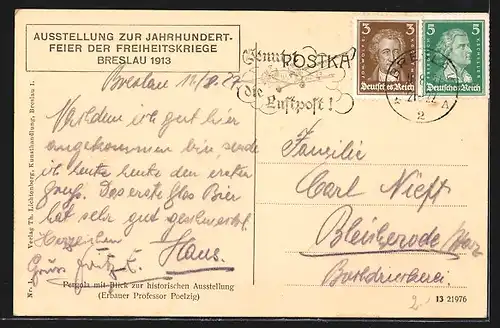 AUSSTELLUNG ZUR JAHRHUNDERT-
FEIER DER FREIHEITSKRIEGE
BRESLAU 1913
Breslau 11/8.27
Nachdem ich gut hier
angekommen bin, sende
ich heute den ersten
Gruß. Das erste Glas Bier
hat sehr gut geschmeckt.
Herzlichen
Gruss Fritz Hans.
Pergola mit Blick zur historischen Ausstellung
(Erbauer Professor Poelzig)
Verlag Th. Lichtenberg, Kunsthandlung, Breslau 1.
POSTKA
Benutzt
die Luftpost!
3 3
Deutsches Reich
5 5
Deutsches Reich
BRESLAU
2
Familie
Carl Nieft
Bleicherode/Harz
Buchdruckerei.
2.-
13 21976